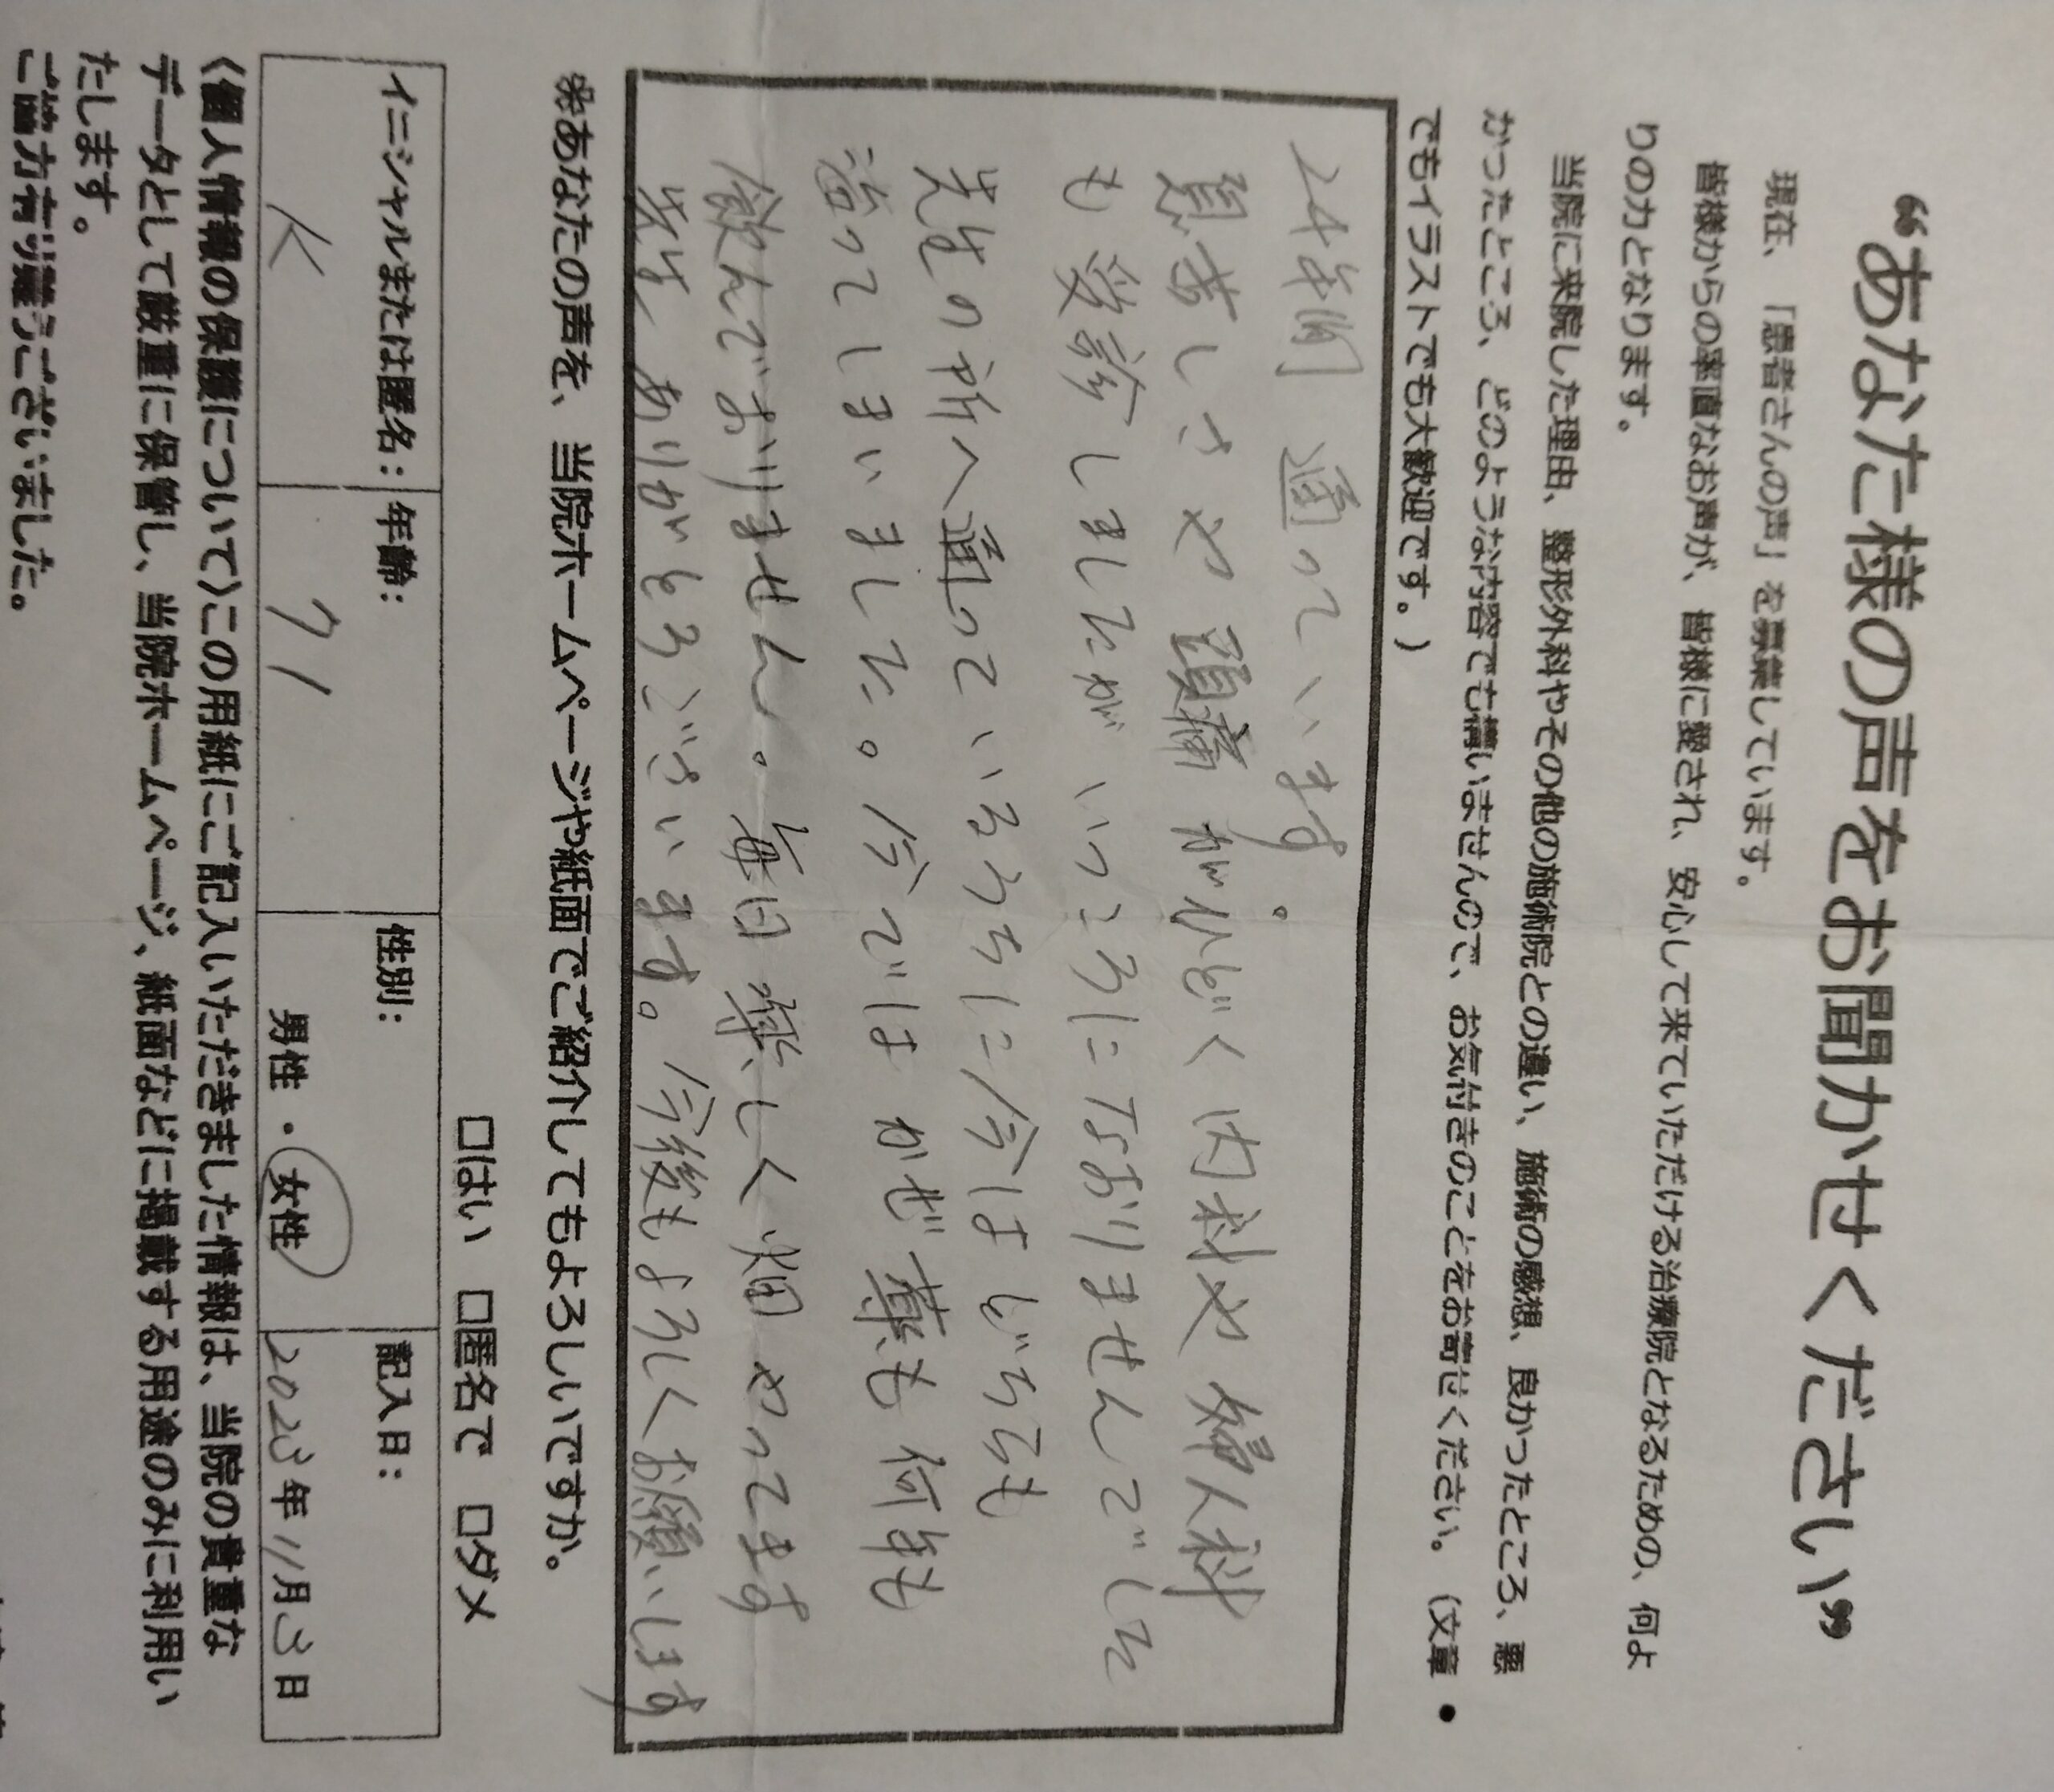 “あなた様の声をお聞かせください”
現在、「患者さんの声」を募集しています。
皆様からの率直なお声が、皆様に愛され、安心して来ていただける治療院となるための、何よ
りの力となります。
当院に来院した理由、整形外科やその他の施術院との違い、施術の感想、良かったところ、悪
かったところ、どのような内容でも構いませんので、お気付きのことをお寄せください。（文章・
でもイラストでも大歓迎です。）
24年間 通っています。
息苦しさや頭痛がひどく内科や婦人科
も受診しましたがいっこうになおりませんでした
先生の所へ通っているうちに今はどちらも
治ってしまいました。今ではかぜ薬も何年も
飲んでおりません。毎日楽しく畑やってます
先生ありがとうございます。今後もよろしくお願いします
※あなたの声を、当院ホームページや紙面でご紹介してもよろしいですか。
□はい □匿名で □ダメ
イニシャルまたは匿名： 年齢： 性別： 記入日：
K 71 男性・女性 2023年11月3日
〈個人情報の保護について〉この用紙にご記入いただきました情報は、当院の貴重な
データとして厳重に保管し、当院ホームページ、紙面などに掲載する用途のみに利用い
たします。
ご協力有り難うございました。